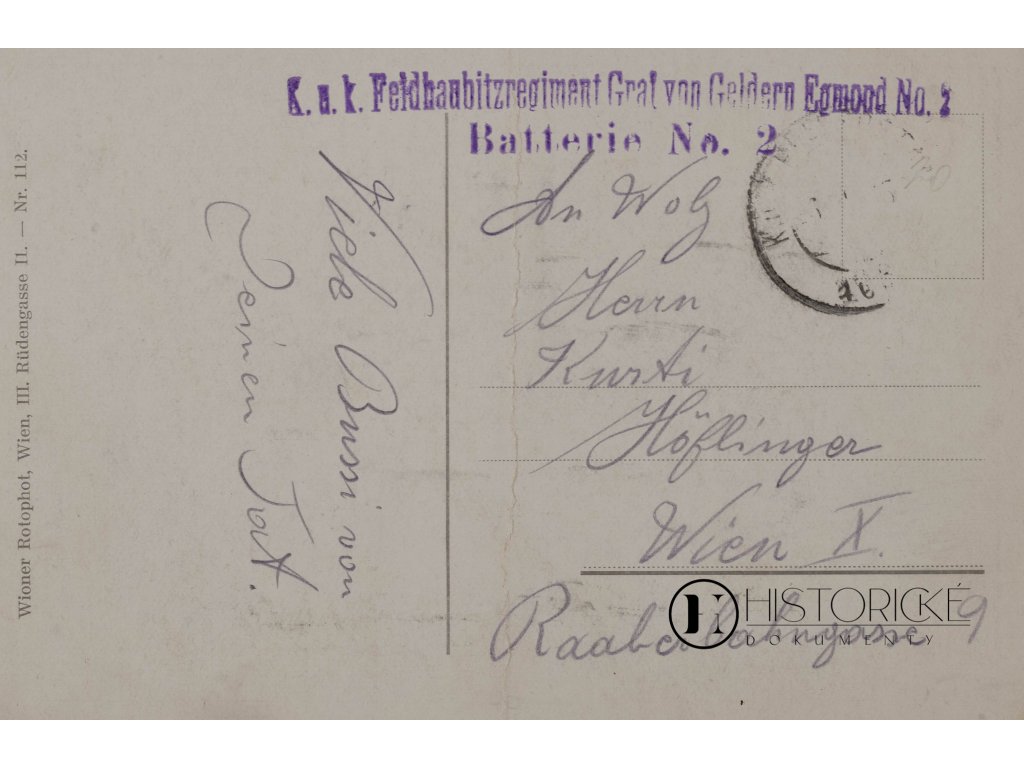 K. u. k. Feldhaubitzregiment Graf von Geldern Egmond No. 2
Batterie No. 2
Viele Bussi von
Deinen
An
Herrn
Kurti
Höflinger
Wien X.
Raaberbahngasse 9
Wioner Rotophot, Wien, III. Rüdengasse II. — Nr. 112.
HISTORICKÉ
DOKUMENTY